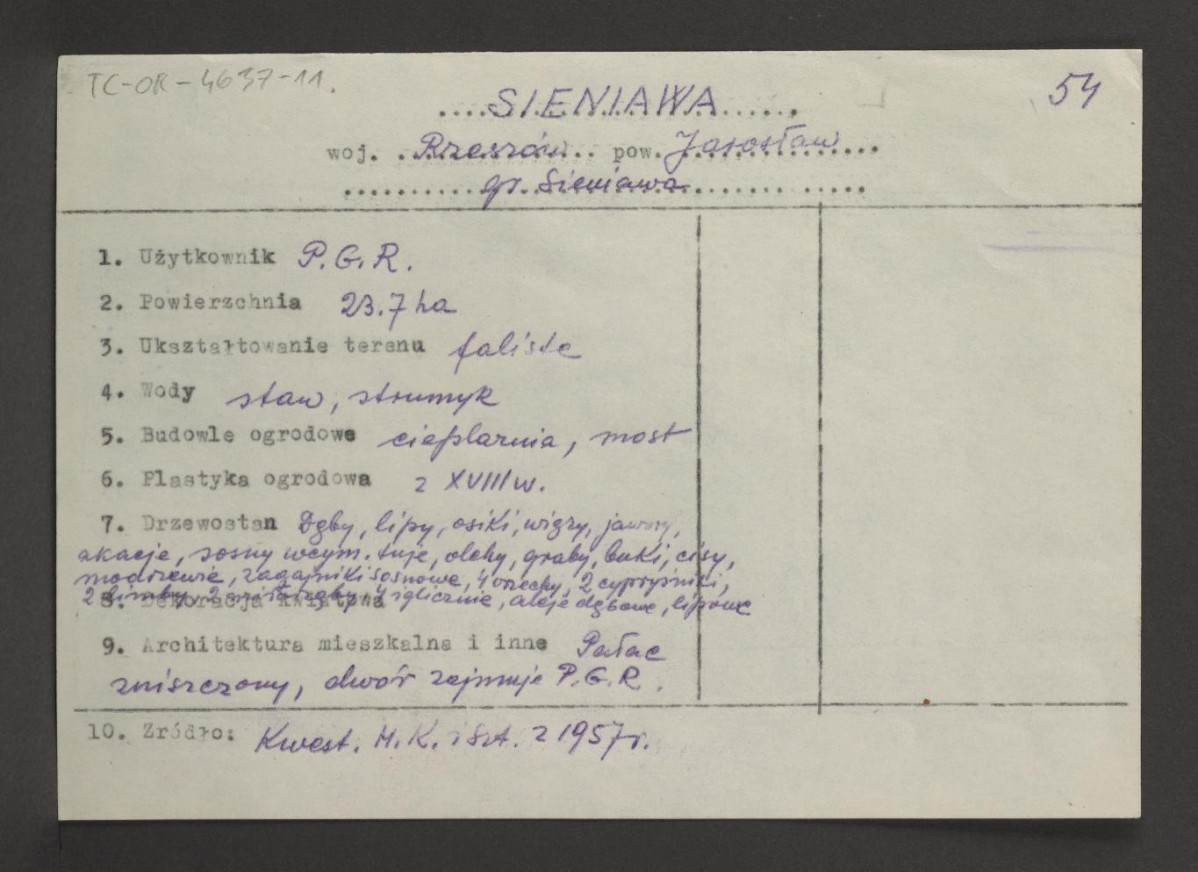 TC-OR-4637-11.
54
....SIENIAWA......
woj. ..Rzeszów... pow. Jarosław....
gr. Sieniawa
1. Użytkownik P.G.R.
2. Powierzchnia 23.7 ha
3. Ukształtowanie terenu faliste
4. Wody staw, strumyk
5. Budowle ogrodowe cieplarnia, most
6. Plastyka ogrodowa z XVIII w.
7. Drzewostan Dęby, lipy, osiki, wiązy, jawory,
akacje, sosny wejm. tuje, olchy, graby, buki, cisy,
modrzewie, zagajniki sosnowe, 4 orzechy, 2 cypryśniki,
2 limby, 2 4 iglicznie, aleje dębowe, lipowe
8. Dekoracja kwiatowa
9. Architektura mieszkalna i inne Pałac
zniszczony, dwór zajmuje P.G.R.
10. Zródło: Kwest. M.K. i Szt. z 1957r.